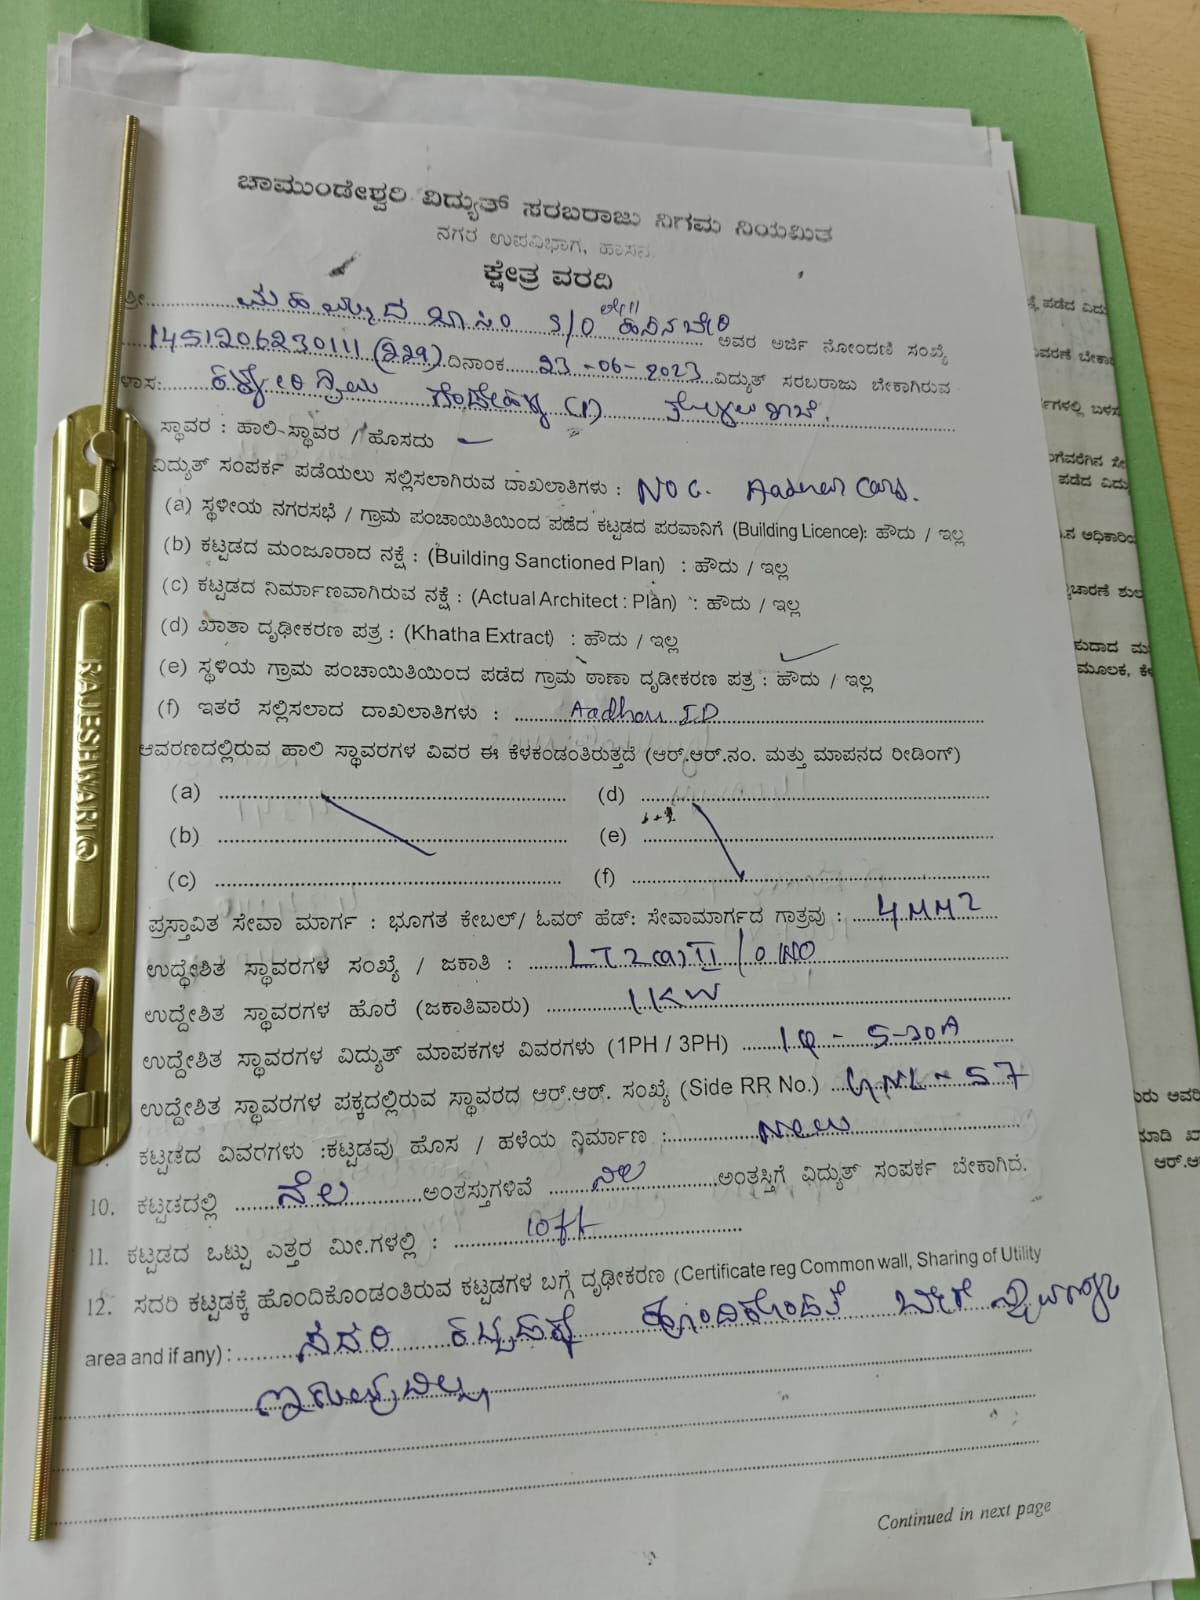 ಚಾಮುಂಡೇಶ್ವರಿ ವಿದ್ಯುತ್ ಸರಬರಾಜು ನಿಗಮ ನಿಯಮಿತ
ನಗರ ಉಪವಿಭಾಗ, ಹಾಸನ.
ಕ್ಷೇತ್ರ ವರದಿ
ಶ್ರೀ. ಮಹಮ್ಮದ ಖಾಸಿಂ S/O
ಅವರ ಅರ್ಜಿ ನೋಂದಣಿ ಸಂಖ್ಯೆ
1451206230111 (229) ದಿನಾಂಕ 23-06-2023 ವಿದ್ಯುತ್ ಸರಬರಾಜು ಬೇಕಾಗಿರುವ
ಳಾಸ: (1)
ಸ್ಥಾವರ : ಹಾಲಿ-ಸ್ಥಾವರ / ಹೊಸದು
ವಿದ್ಯುತ್ ಸಂಪರ್ಕ ಪಡೆಯಲು ಸಲ್ಲಿಸಲಾಗಿರುವ ದಾಖಲಾತಿಗಳು : NOC. Aadhar Card.
(a) ಸ್ಥಳೀಯ ನಗರಸಭೆ / ಗ್ರಾಮ ಪಂಚಾಯಿತಿಯಿಂದ ಪಡೆದ ಕಟ್ಟಡದ ಪರವಾನಿಗೆ (Building Licence): ಹೌದು / ಇಲ್ಲ
(b) ಕಟ್ಟಡದ ಮಂಜೂರಾದ ನಕ್ಷೆ : (Building Sanctioned Plan) : ಹೌದು / ಇಲ್ಲ
(c) ಕಟ್ಟಡದ ನಿರ್ಮಾಣವಾಗಿರುವ ನಕ್ಷೆ : (Actual Architect : Plan) : ಹೌದು / ಇಲ್ಲ
(d) ಖಾತಾ ದೃಢೀಕರಣ ಪತ್ರ : (Khatha Extract) : ಹೌದು / ಇಲ್ಲ
(e) ಸ್ಥಳಿಯ ಗ್ರಾಮ ಪಂಚಾಯಿತಿಯಿಂದ ಪಡೆದ ಗ್ರಾಮ ಠಾಣಾ ದೃಡೀಕರಣ ಪತ್ರ : ಹೌದು / ಇಲ್ಲ
(f) ಇತರೆ ಸಲ್ಲಿಸಲಾದ ದಾಖಲಾತಿಗಳು : Aadhar ID
ಆವರಣದಲ್ಲಿರುವ ಹಾಲಿ ಸ್ಥಾವರಗಳ ವಿವರ ಈ ಕೆಳಕಂಡಂತಿರುತ್ತದೆ (ಆರ್.ಆರ್.ನಂ. ಮತ್ತು ಮಾಪನದ ರೀಡಿಂಗ್)
(a) (d)
(b) (e)
(c) (f)
ಪ್ರಸ್ತಾವಿತ ಸೇವಾ ಮಾರ್ಗ : ಭೂಗತ ಕೇಬಲ್/ ಓವರ್ ಹೆಡ್: ಸೇವಾಮಾರ್ಗದ ಗಾತ್ರವು : 4MM2
ಉದ್ಧೇಶಿತ ಸ್ಥಾವರಗಳ ಸಂಖ್ಯೆ / ಜಕಾತಿ : LT2(a)II / 01NO
ಉದ್ದೇಶಿತ ಸ್ಥಾವರಗಳ ಹೊರೆ (ಜಕಾತಿವಾರು) 1KW
ಉದ್ದೇಶಿತ ಸ್ಥಾವರಗಳ ವಿದ್ಯುತ್ ಮಾಪಕಗಳ ವಿವರಗಳು (1PH / 3PH) 1φ - 5-30A
ಉದ್ದೇಶಿತ ಸ್ಥಾವರಗಳ ಪಕ್ಕದಲ್ಲಿರುವ ಸ್ಥಾವರದ ಆರ್.ಆರ್. ಸಂಖ್ಯೆ (Side RR No.) - 57
ಕಟ್ಟಡದ ವಿವರಗಳು :ಕಟ್ಟಡವು ಹೊಸ / ಹಳೆಯ ನಿರ್ಮಾಣ : New
10. ಕಟ್ಟಡದಲ್ಲಿ ನೆಲ ಅಂತಸ್ತುಗಳಿವೆ ನೆಲ ಅಂತಸ್ತಿಗೆ ವಿದ್ಯುತ್ ಸಂಪರ್ಕ ಬೇಕಾಗಿದೆ.
11. ಕಟ್ಟಡದ ಒಟ್ಟು ಎತ್ತರ ಮೀ.ಗಳಲ್ಲಿ : 10ft
12. ಸದರಿ ಕಟ್ಟಡಕ್ಕೆ ಹೊಂದಿಕೊಂಡಂತಿರುವ ಕಟ್ಟಡಗಳ ಬಗ್ಗೆ ದೃಢೀಕರಣ (Certificate reg Common wall, Sharing of Utility
area and if any) : ಸದರಿ ಕಟ್ಟಡಕ್ಕೆ ಹೊಂದಿಕೊಂಡಂತೆ ಬೇರೆ
ಇರುವುದಿಲ್ಲ
Continued in next page
RAJESHWARI®